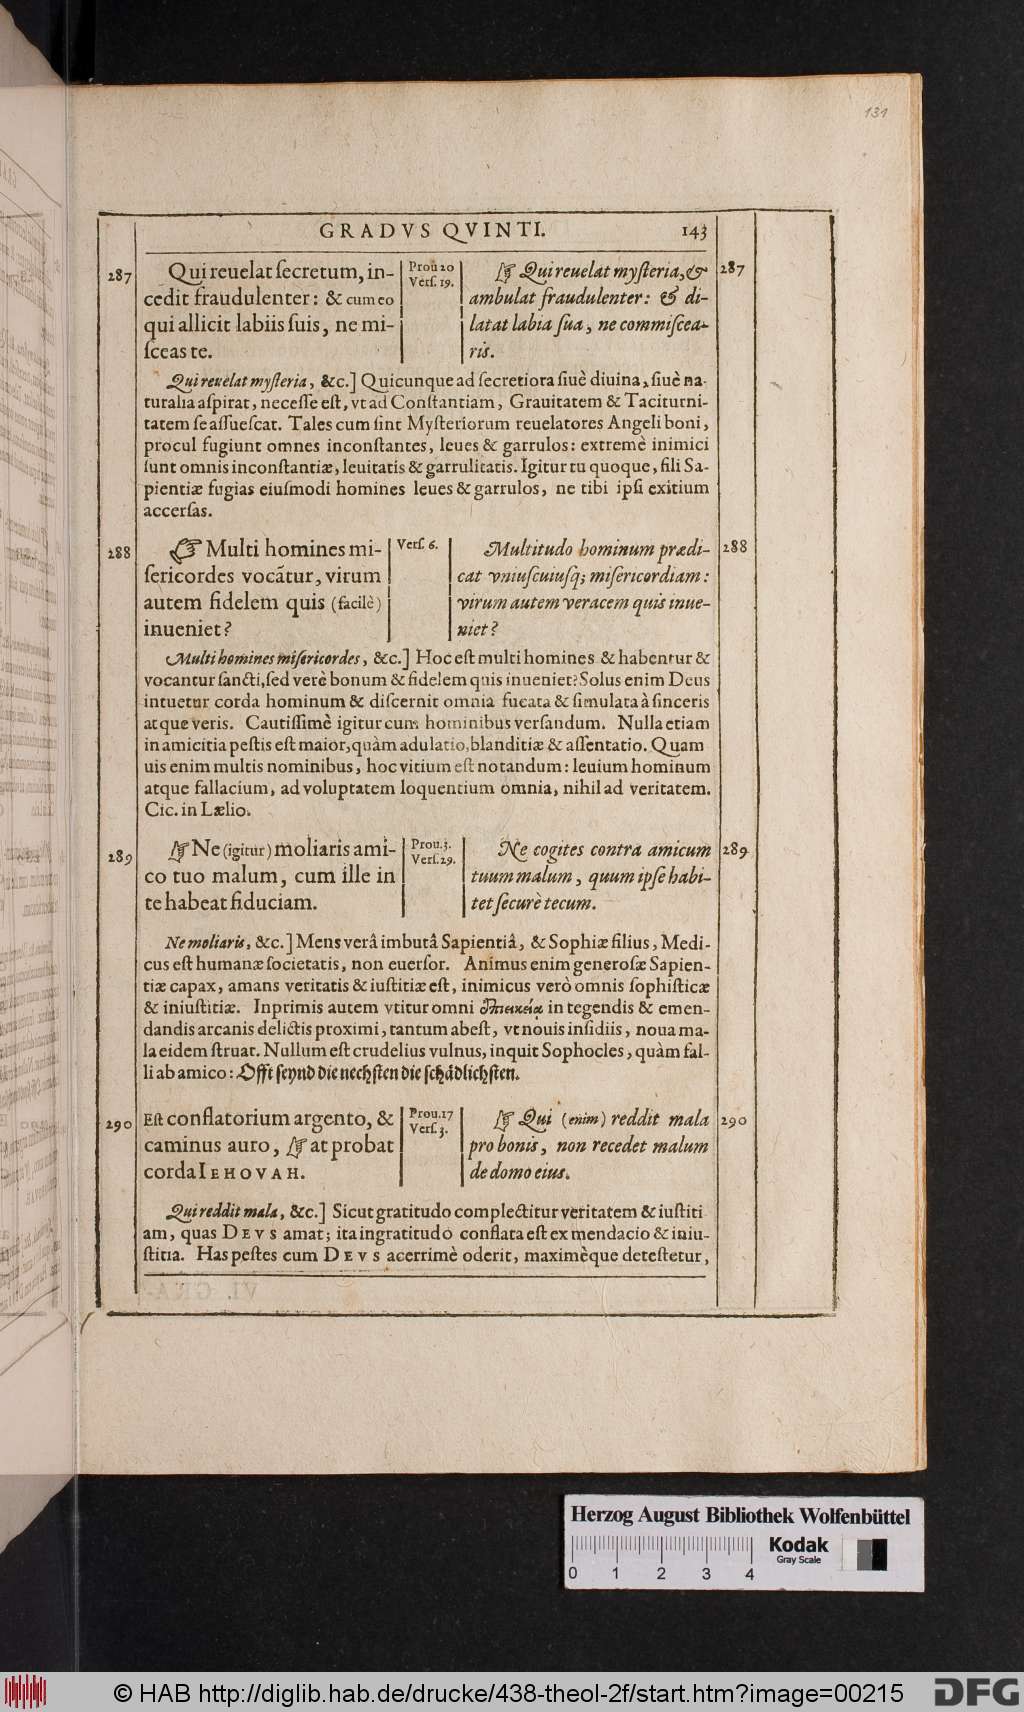 131
GRADVS QVINTI. 143
287 Qui reuelat ſecretum, in-
cedit fraudulenter: & cum eo
qui allicit labiis ſuis, ne mi-
ſceas te.
Prou 20
Verſ. 19.
☞ Qui reuelat myſteria, & 287
ambulat fraudulenter: & di-
latat labia ſua, ne commiſcea-
ris.
Qui reuelat myſteria, &c.] Quicunque ad ſecretiora ſiuè diuina, ſiuè na-
turalia aſpirat, neceſſe eſt, vt ad Conſtantiam, Grauitatem & Taciturni-
tatem ſe aſſueſcat. Tales cum ſint Myſteriorum reuelatores Angeli boni,
procul fugiunt omnes inconſtantes, leues & garrulos: extremè inimici
ſunt omnis inconſtantiæ, leuitatis & garrulitatis. Igitur tu quoque, fili Sa-
pientiæ fugias eiuſmodi homines leues & garrulos, ne tibi ipſi exitium
accerſas.
288 ☞ Multi homines mi-
ſericordes vocātur, virum
autem fidelem quis (facilè)
inueniet?
Verſ. 6.
Multitudo hominum prædi- 288
cat vniuſcuiuſq; miſericordiam:
virum autem veracem quis inue-
niet?
Multi homines miſericordes, &c.] Hoc eſt multi homines & habentur &
vocantur ſancti, ſed verè bonum & fidelem quis inueniet? Solus enim Deus
intuetur corda hominum & diſcernit omnia fucata & ſimulata à ſinceris
atque veris. Cautiſſimè igitur cum hominibus verſandum. Nulla etiam
in amicitia peſtis eſt maior, quàm adulatio, blanditiæ & aſſentatio. Quam
uis enim multis nominibus, hoc vitium eſt notandum: leuium hominum
atque fallacium, ad voluptatem loquentium omnia, nihil ad veritatem.
Cic. in Lælio.
289 ☞ Ne (igitur) moliaris ami-
co tuo malum, cum ille in
te habeat fiduciam.
Prou. 3.
Verſ. 29.
Ne cogites contra amicum 289
tuum malum, quum ipſe habi-
tet ſecurè tecum.
Ne moliaris, &c.] Mens verâ imbutâ Sapientiâ, & Sophiæ filius, Medi-
cus eſt humanæ ſocietatis, non euerſor. Animus enim generoſæ Sapien-
tiæ capax, amans veritatis & iuſtitiæ eſt, inimicus verò omnis ſophiſticæ
& iniuſtitiæ. Inprimis autem vtitur omni ἐπιεικείᾳ in tegendis & emen-
dandis arcanis delictis proximi, tantum abeſt, vt nouis inſidiis, noua ma-
la eidem ſtruat. Nullum eſt crudelius vulnus, inquit Sophocles, quàm fal-
li ab amico: Offt ſeynd die nechſten die ſchädlichſten.
290 Est conflatorium argento, &
caminus auro, ☞ at probat
corda IEHOVAH.
Prou. 17
Verſ. 3.
☞ Qui (enim) reddit mala 290
pro bonis, non recedet malum
de domo eius.
Qui reddit mala, &c.] Sicut gratitudo complectitur veritatem & iuſtiti
am, quas DEVS amat; ita ingratitudo conflata eſt ex mendacio & iniu-
ſtitia. Has peſtes cum DEVS acerrimè oderit, maximèque deteſtetur,
Herzog August Bibliothek Wolfenbüttel
0 1 2 3 4
Kodak
Gray Scale
© HAB http://diglib.hab.de/drucke/438-theol-2f/start.htm?image=00215
DFG